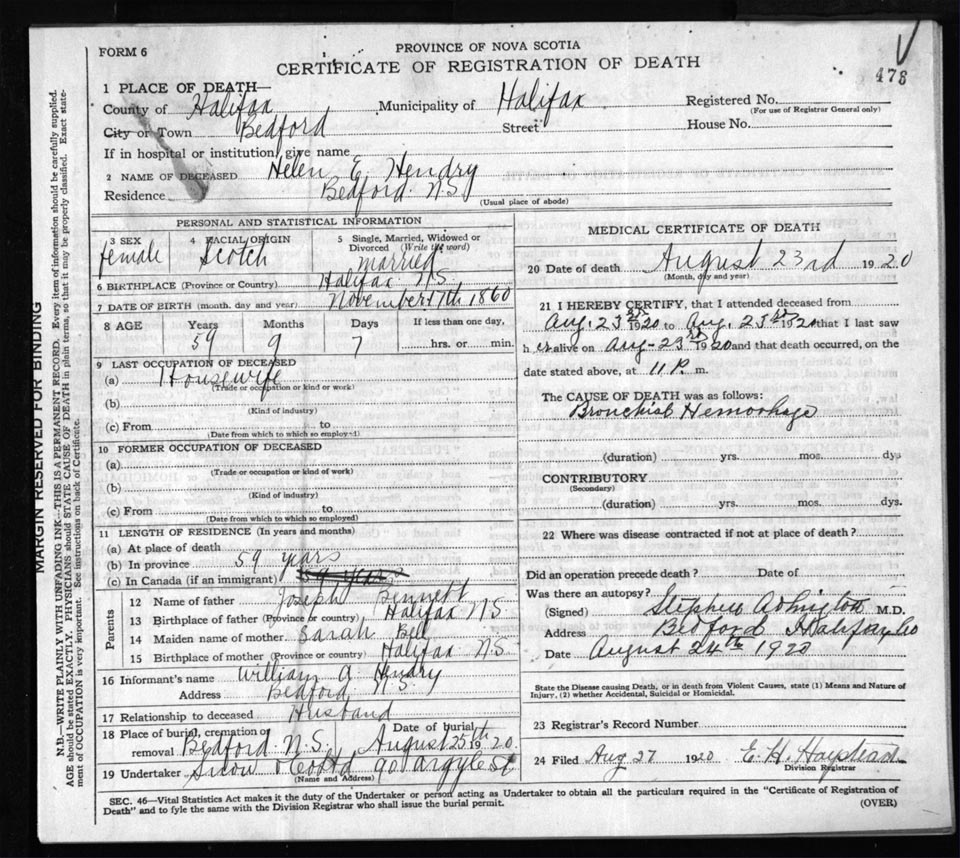 FORM 6
PROVINCE OF NOVA SCOTIA
CERTIFICATE OF REGISTRATION OF DEATH
473
1 PLACE OF DEATH—
County of Halifax Municipality of Halifax Registered No.
(For use of Registrar General only)
City or Town Bedford Street House No.
If in hospital or institution, give name
2 NAME OF DECEASED Helen E. Hendry
Residence Bedford N.S.
(Usual place of abode)
PERSONAL AND STATISTICAL INFORMATION
3 SEX 4 RACIAL ORIGIN 5 Single, Married, Widowed or Divorced (Write the word)
Female Scotch married
6 BIRTHPLACE (Province or Country) Halifax N.S.
7 DATE OF BIRTH (month, day and year) November 17th 1860
8 AGE Years Months Days If less than one day,
59 9 7 hrs. or min.
9 LAST OCCUPATION OF DECEASED
(a) Housewife
(Trade or occupation or kind or work)
(b)
(Kind of industry)
(c) From to
(Date from which to which so employed)
10 FORMER OCCUPATION OF DECEASED
(a)
(Trade or occupation or kind of work)
(b)
(Kind of industry)
(c) From to
(Date from which to which so employed)
11 LENGTH OF RESIDENCE (In years and months)
(a) At place of death
(b) In province 59 years
(c) In Canada (if an immigrant) 59 years
Parents
12 Name of father Joseph Bennett
13 Birthplace of father (Province or country) Halifax N.S.
14 Maiden name of mother Sarah Bell
15 Birthplace of mother (Province or country) Halifax N.S.
16 Informant's name William A Hendry
Address Bedford N S
17 Relationship to deceased Husband
18 Place of burial, cremation or removal Bedford N.S. Date of burial August 25th 1920.
19 Undertaker Snow & Co Ltd 90 Argyle St
(Name and Address)
MEDICAL CERTIFICATE OF DEATH
20 Date of death August 23rd 1920
(Month, day and year)
21 I HEREBY CERTIFY, that I attended deceased from
Aug. 23rd 1920 to Aug. 23rd 1920 that I last saw
her alive on Aug-23rd 1920 and that death occurred, on the
date stated above, at 11 P. m.
The CAUSE OF DEATH was as follows:
Bronchial Hemorhage
(duration) yrs. mos. dys
CONTRIBUTORY
(Secondary)
(duration) yrs. mos. dys.
22 Where was disease contracted if not at place of death?
Did an operation precede death? Date of
Was there an autopsy?
(Signed) Stephen M.D.
Address Bedford Halifax Co
Date August 24th 1920
State the Disease causing Death, or in death from Violent Causes, state (1) Means and Nature of
Injury, (2) whether Accidental, Suicidal or Homicidal.
23 Registrar's Record Number
24 Filed Aug 27 1920 E. H.
Division Registrar
SEC. 46—Vital Statistics Act makes it the duty of the Undertaker or person acting as Undertaker to obtain all the particulars required in the "Certificate of Registration of
Death" and to fyle the same with the Division Registrar who shall issue the burial permit.
(OVER)
MARGIN RESERVED FOR BINDING
N.B.—WRITE PLAINLY WITH UNFADING INK—THIS IS A PERMANENT RECORD. Every item of information should be carefully supplied.
AGE should be stated EXACTLY. PHYSICIANS should STATE CAUSE OF DEATH in plain terms, so that it may be properly classified. Exact state-
ment of OCCUPATION is very important. See instructions on back of Certificate.